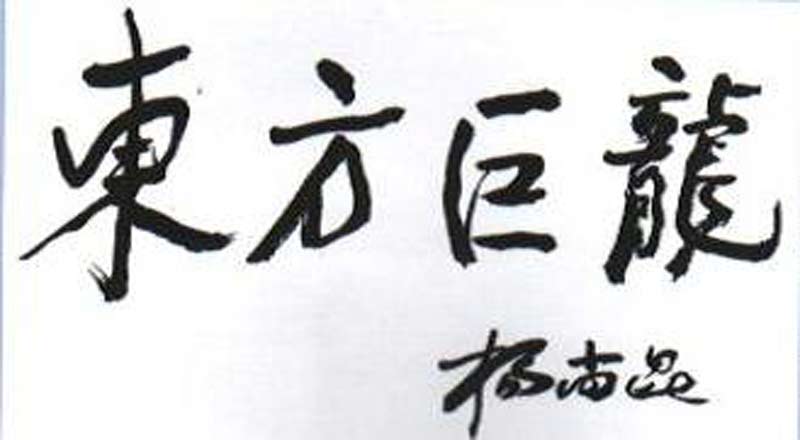 東方巨龍
楊尚昆